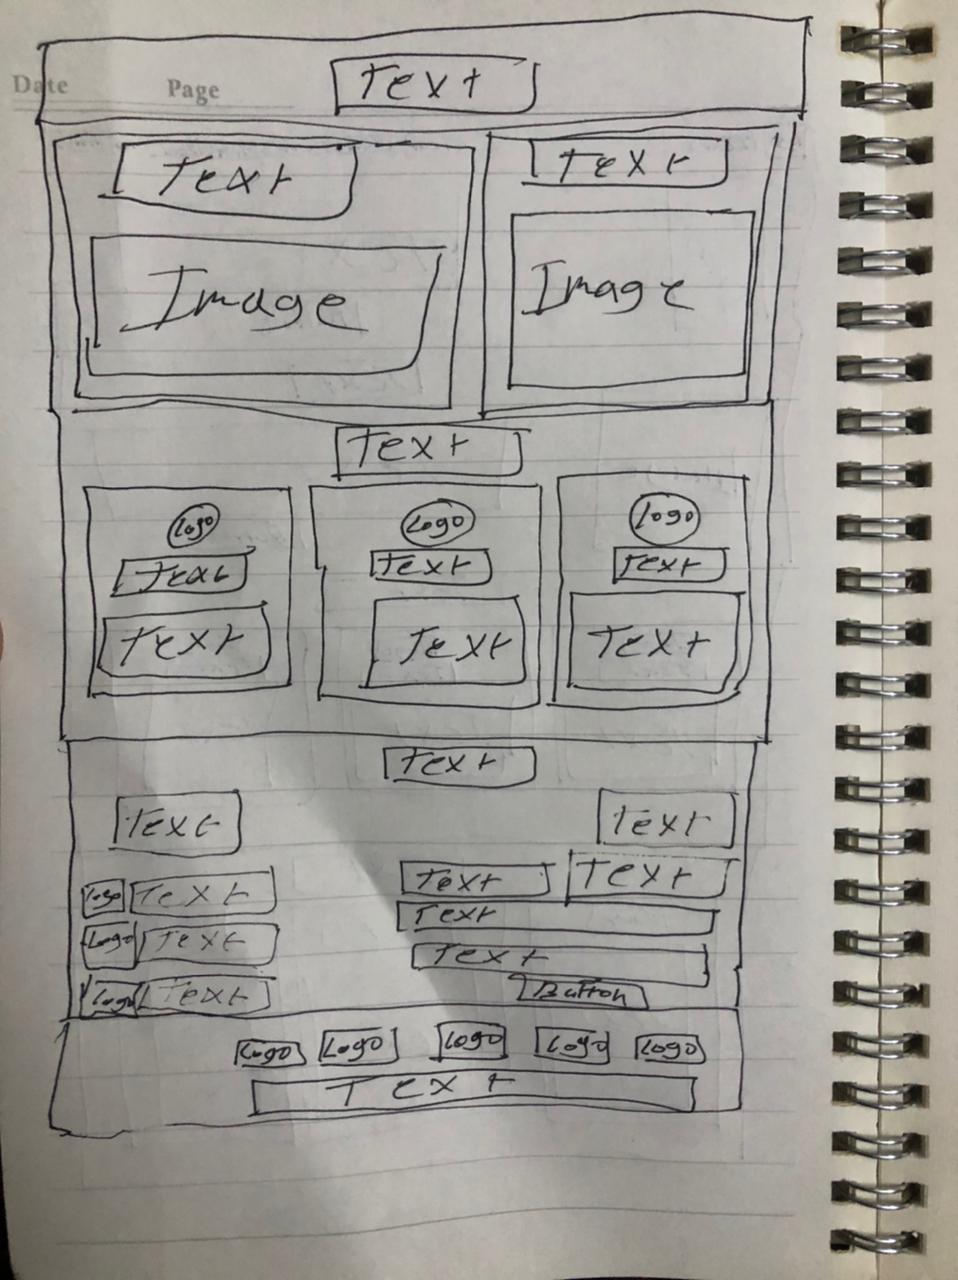 Date Page
Text
Text Text
Image Image
Text
Logo Logo Logo
Text Text Text
Text Text Text
Text
Text Text
Logo Text Text Text
Text
Logo Text
Text
Logo Text Button
Logo Logo Logo Logo Logo
Text